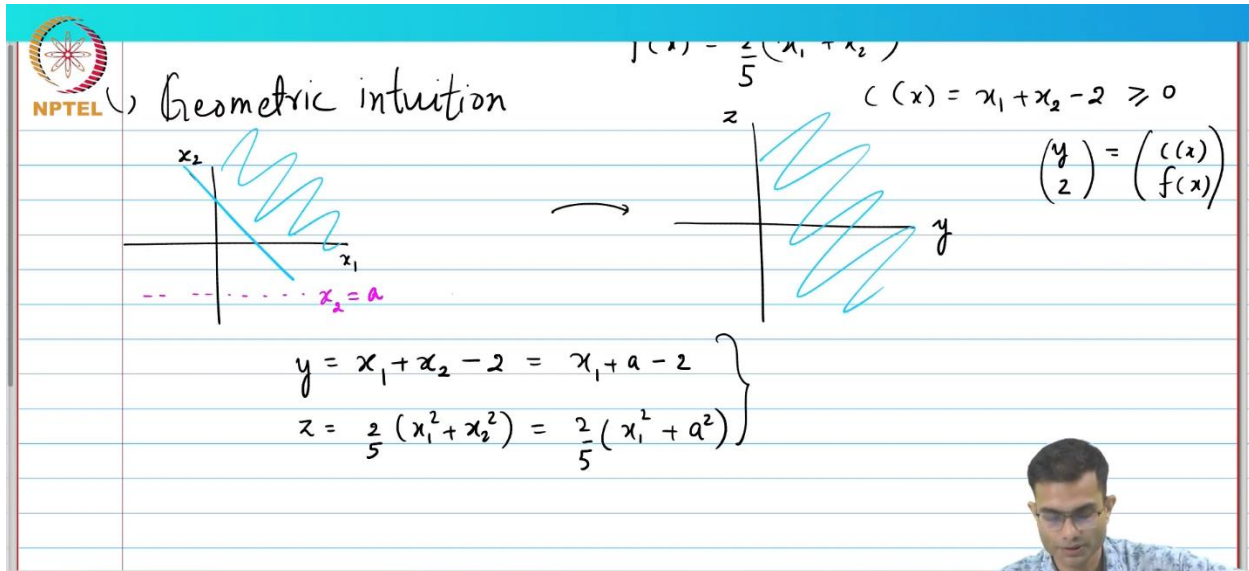 NPTEL
f(x) = 2/5 (x₁² + x₂²)
↳ Geometric intuition
C(x) = x₁ + x₂ - 2 ⩾ 0
x₂
x₁
x₂ = a
z
y
(y z) = (C(x) f(x))
y = x₁ + x₂ - 2 = x₁ + a - 2
z = 2/5 (x₁² + x₂²) = 2/5 (x₁² + a²)